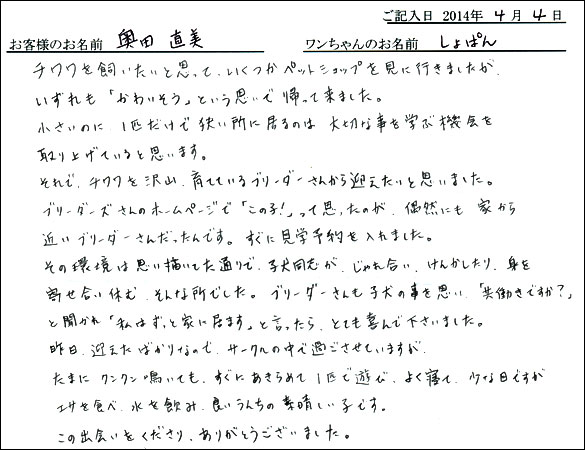 ご記入日 2014年 4月 4日
お客様のお名前 奥田 直美 ワンちゃんのお名前 しょぱん
チワワを飼いたいと思って、いくつかペットショップを見に行きましたが、
いずれも「かわいそう」という思いで帰って来ました。
小さいのに 1匹だけで狭い所に居るのは 大切な事を学ぶ機会を
取り上げていると思います。
それで、チワワを沢山、育てているブリーダーさんから迎えたいと思いました。
ブリーダーズさんのホームページで「この子!」って思ったのが、偶然にも 家から
近いブリーダーさんだったんです。すぐに見学予約を入れました。
その環境は思い描いてた通りで、子犬同志が、じゃれ合い、けんかしたり、身を
寄せ合い休む、そんな所でした。ブリーダーさんも子犬の事を思い、「共働きですか?」
と聞かれ「私はずっと家に居ます」と言ったら、とても喜んで下さいました。
昨日、迎えたばかりなので、サークルの中で過ごさせていますが、
たまに クンクン 鳴いても、すぐにあきらめて 1匹で遊び、よく寝て、少な目ですが
エサを食べ、水を飲み、良いうんちの 素晴しい子です。
この出会いをくださり、ありがとうございました。